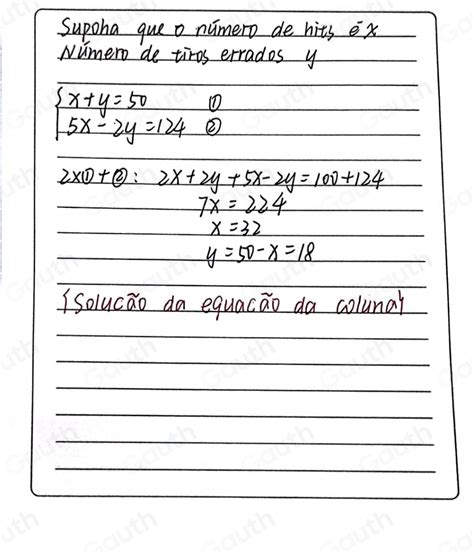 Supoha que o número de hits é x
Número de tiros errados y
x+y=50 ①
5x-2y=124 ②
2x①+②: 2x+2y+5x-2y=100+124
7x=224
x=32
y=50-x=18
{Solucão da equacão da coluna}